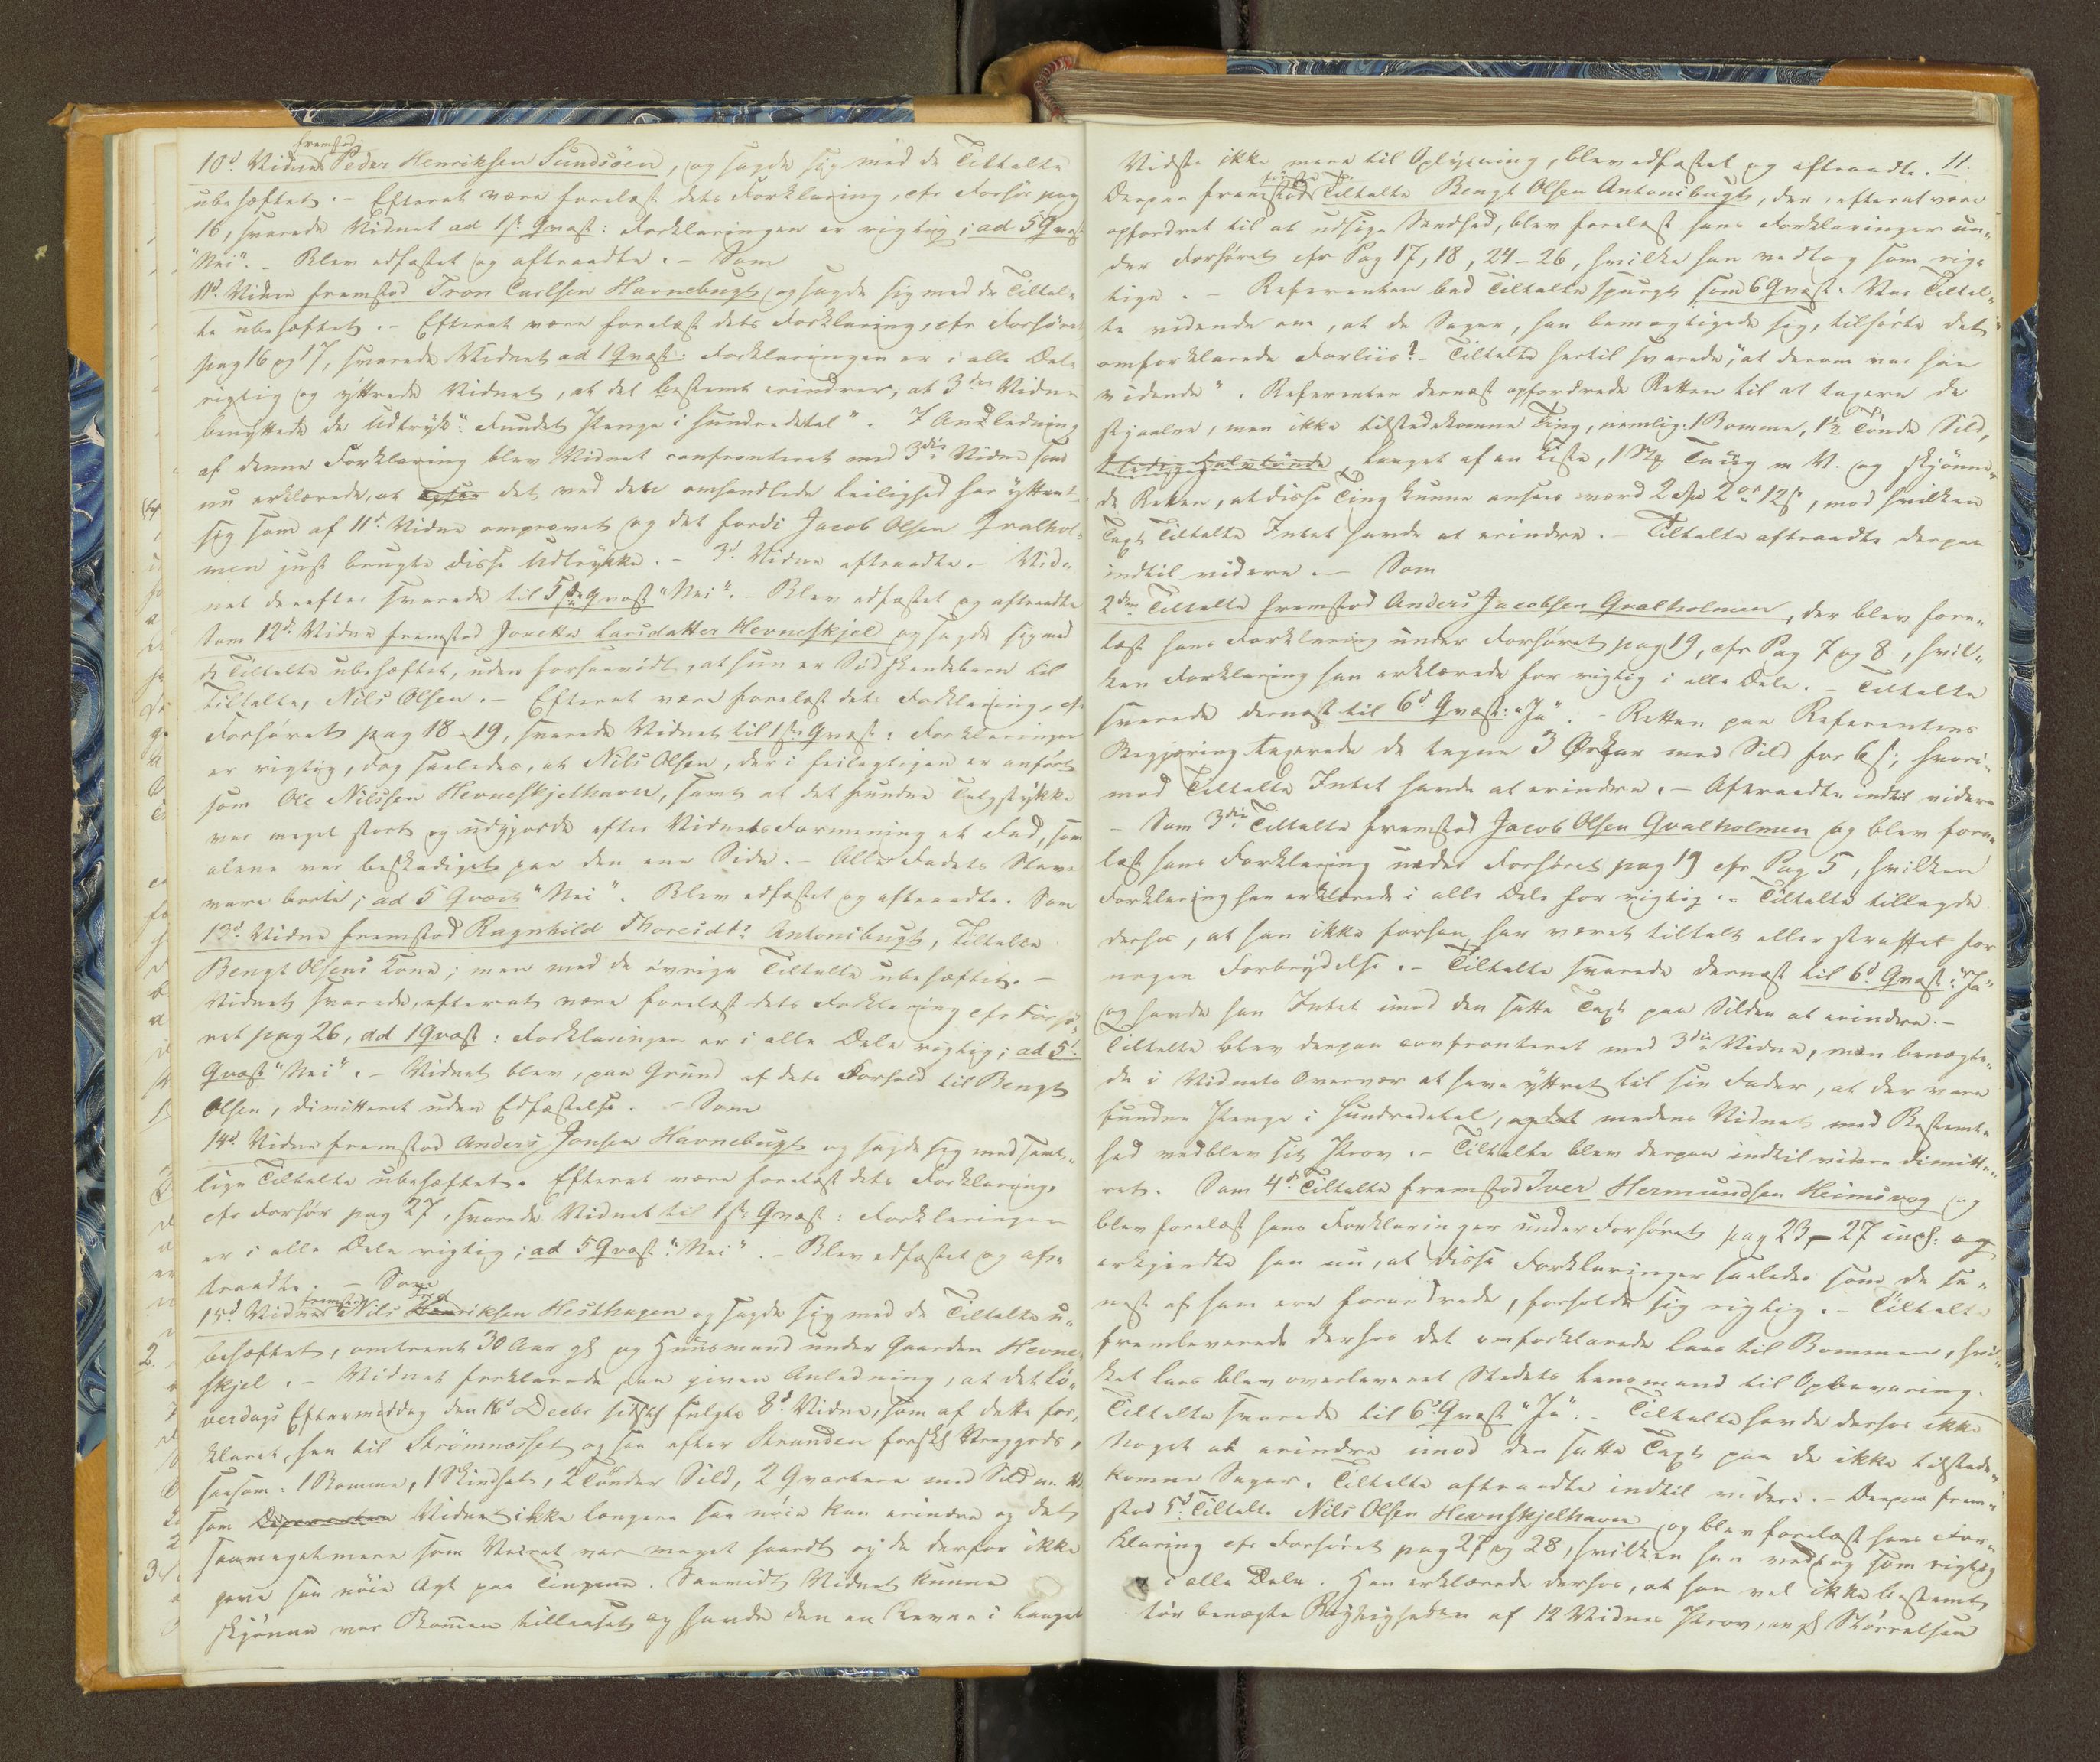 10d Vidne fremstod Peder Henriksen Sundsöen, og sagde sig med de Tiltalte
ubehæftet. – Efterat være forelæst dets Forklaring, cfr Forhör pag
16, svarede Vidnet ad 1ste Qvæst: Forklaringen er rigtig; ad 5 Qvæst
"Nei". – Blev edfæstet og aftraadte. – Som
11d. Vidne fremstod Tron Carlsen Havnebugt og sagde sig med de Tiltal-
te ubehæftet. – Efterat være forelæst dets Forklaring, cfr Forhöret
pag 16 og 17, svarede Vidnet ad 1 Qvæst: Forklaringen er i alle Dele
rigtig og yttrede Vidnet, at det bestemt erindrer, at 3die Vidne
benyttede de Udtryk: "Fundet Penge i hundredetal". I Anledning
af denne Forklaring blev Vidnet confronteret med 3die Vidne som
nu erklærede, at det ved den omhandlede Leilighed har yttret
sig som af 11te Vidne omprovet og det fordi Jacob Olsen Qvalhol-
men just brugte disse Udtrykke. – 3d. Vidne aftraadte. – Vid-
net derefter svarede til 5te Qvæst "Nei". – Blev edfæstet og aftraadte
Som 12d. Vidne fremstod Jonetta Larsdatter Hevneskjel og sagde sig med
de Tiltalte ubehæftet, uden forsaavidt, at hun er Södskendebarn til
Tiltalte, Nils Olsen. – Efterat være forelæst dets Forklaring, cfr
Forhöret pag 18–19, svarede Vidnet til 1ste Qvæst: Forklaringen
er rigtig, dog saaledes, at Nils Olsen, der i feilagtigen er anført
som Ole Nilssen Hevneskjelhavn, samt at det fundne Talgstykke
var meget stort og udgjorde efter Vidnets Formening et Fad, som
alene var beskadiget paa den ene Side. – Alle Fadets Stave
vare borte; ad 5 Qvæst "Nei". Blev edfæstet og aftraadte. Som
13d. Vidne fremstod Ragnhild Thoresdtr Antonibugt, Tiltalte
Bengt Olsens Kone; men med de övrige Tiltalte ubehæftet. –
Vidnet svarede, efterat være forelæst dets Forklaring cfr Forhö-
ret pag 26, ad 1 Qvæst: Forklaringen er i alle Dele rigtig; ad 5t.
Qvæst "Nei". – Vidnet blev, paa Grund af dets Forhold til Bengt
Olsen, dimitteret uden Edfæstelse. – Som
14d. Vidne fremstod Anders Jonsen Havnebugt og sagde sig med samt-
lige Tiltalte ubehæftet. Efterat være forelæst dets Forklaring,
cfr Forhör pag 27, svarede Vidnet til 1ste Qvæst: Forklaringen
er i alle Dele rigtig; ad 5 Qvæst: "Nei". – Blev edfæstet og af-
traadte. – Som
15d Vidne fremstod Nils Henriksen Hesthagen og sagde sig med de Tiltalte u-
behæftet, omtrent 30 Aar gl og Huusmand under Gaarden Hevne-
skjel. – Vidnet forklarede paa given Anledning, at det Lö-
verdags Eftermiddag den 16d Decbr sidstl fulgte 8d. Vidne, som af dette for-
klaret, hen til Strömnæsset og saa efter Stranden forskl Vraggods,
saasom: 1 Bomme, 1 Skindhat, 2 Tönder Sild, 2 Qvartere med Sild m. V.
som Vidnet ikke længere saa nöie kan erindre og det
saameget mere som Veiret var meget haardt og de derfor ikke
gave saa nöie Agt paa Tingene. Saavidt Vidnet kunne
skjönne var Bommen tillaaset og havde den en Revne i Laaget
Vidste ikke mere til Oplysning, blev edfæstet og aftraadte. 11.
Derpaa fremstod første Tiltalte Bengt Olsen Antonibugt, der, efterat være
opfordret til at udsige Sandhed, blev forelæst hans Forklaringer un-
der Forhöret cfr Pag 17, 18, 24–26, hvilke han vedtog som rig-
tige. – Referenten bad Tiltalte spurgt som 6 Qvæst: Var Tiltal-
te vidende om, at de Sager, han bemægtigede sig, tilhörte det
omforklarede Forliis? – Tiltalte hertil svarede, "at derom var han
vidende". Referenten dernæst opfordrede Retten til at taxere de
stjaalne, men ikke tilstedekomne Ting, nemlig: 1 Bomme, 1½ Tönde Sild,
Laaget af en Kiste, 1 Taug m V. og skjönne-
de Retten, at disse Ting kunne ansees værd 2 Spd 2 ort 12 s, mod hvilken
Taxt Tiltalte Intet havde at erindre. – Tiltalte aftraadte derpaa
indtil videre. – Som
2den Tiltalte fremstod Anders Jacobsen Qvalholmen, der blev fore-
læst hans Forklaring under Forhöret pag 19, cfr Pag 7 og 8, hvil-
ken Forklaring han erklærede for rigtig i alle Dele. – Tiltalte
svarede dernæst til 6d. Qvæst: "Ja". – Retten paa Referentens
Begjæring taxerede de tagne 3 med Sild for 6 s, hvori-
mod Tiltalte Intet havde at erindre. – Aftraadte indtil videre
– Som 3die Tiltalte fremstod Jacob Olsen Qvalholmen og blev fore-
læst hans Forklaring under Forhöret pag 19 cfr Pag 5, hvilken
Forklaring han erklærede i alle Dele for rigtig. – Tiltalte tillagde
derhos, at han ikke forhen har været tiltalt eller straffet for
nogen Forbrydelse. – Tiltalte svarede dernæst til 6d. Qvæst: "Ja"
og havde han Intet imod den satte Taxt paa Silden at erindre. –
Tiltalte blev derpaa confronteret med 3die Vidne, men benægte-
de i Vidnets Overvær at have yttret til sin Fader, at der vare
fundne Penge i Hundredetal, medens Vidnet med Bestemt-
hed vedblev sit Prov. – Tiltalte blev derpaa indtil videre dimitte-
ret. Som 4d. Tiltalte fremstod Iver Hermundsen Heimsvog og
blev forelæst hans Forklaringer under Forhöret pag 23–27 incl: og
erkjendte han nu, at disse Forklaringer saaledes som de se-
nest af ham ere forandrede, forholde sig rigtig. – Tiltalte
fremleverede derhos det omforklarede Laas til Bommen, hvil-
ket Laas blev overleveret Stedets Lensmand til Opbevaring.
Tiltalte svarede til 6d. Qvæst "Ja". – Tiltalte havde derhos ikke
Noget at erindre imod den satte Taxt paa de ikke tilstede-
komne Sager. Tiltalte aftraadte indtil videre. – Derpaa frem-
stod 5d. Tiltalte Nils Olsen Hevnskjelhavn og blev forelæst hans For-
klaring cfr Forhöret pag 27 og 28, hvilken han vedtog som rigtig
i alle Dele. Han erklærede derhos, at han vel ikke bestemt
tör benægte Rigtigheden af 12 Vidnes Prov, ang Störrelsen